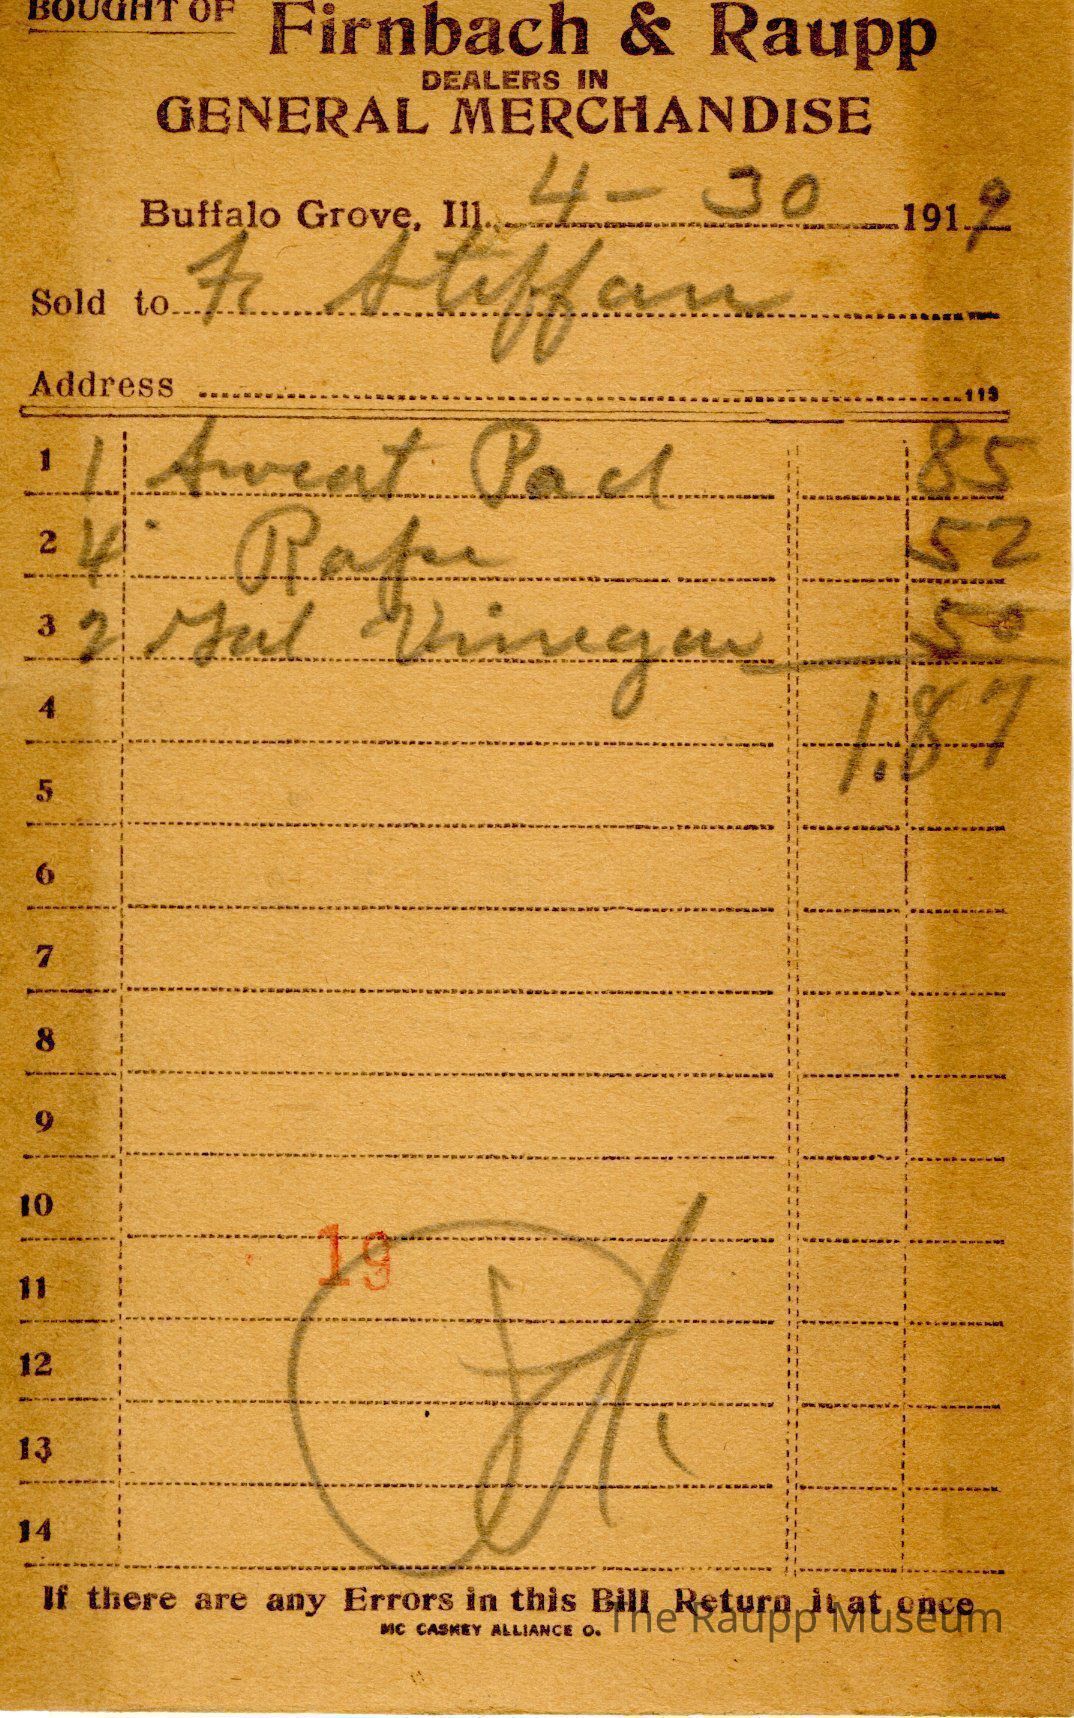 BOUGHT OF Firnbach & Raupp
DEALERS IN
GENERAL MERCHANDISE
Buffalo Grove, Ill. 4-30 1919
Sold to F. Steffan
Address 113
1 1 Sweat Pad 85
2 4 Rape 52
3 2 Gal Vinegar 50
4 1.87
5
6
7
8
9
10
19
11
12
13
14
If there are any Errors in this Bill Return it at once
MC CASKEY ALLIANCE O.
The Raupp Museum